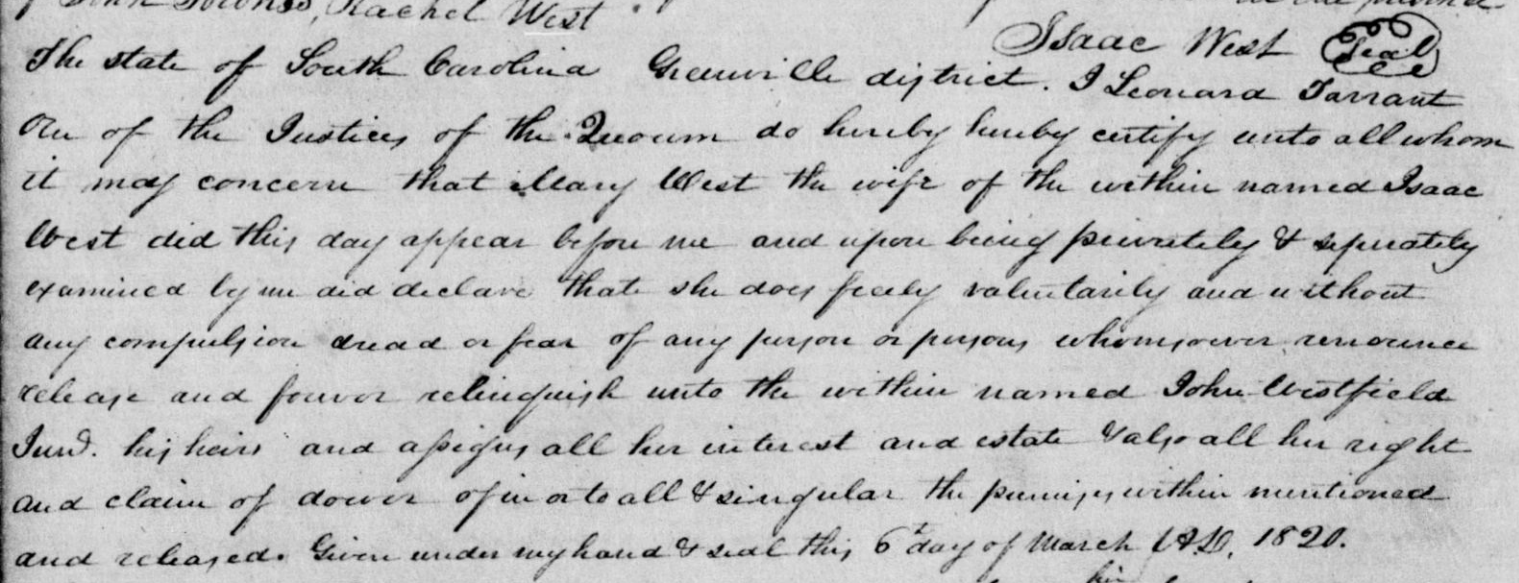 Rachel West
Isaac West Seal
The state of South Carolina Greenville district. I Leonard Tarrant
One of the Justices of the Quoum do hereby hereby certify unto all whom
it may concern that Mary West the wife of the within named Isaac
West did this day appear before me and upon being privately & seperately
examined by me did declare that she does freely voluntarily and without
any compulsion dread or fear of any person or persons whomsoever renounce
release and forever relinquish unto the within named John Westfield
his heirs and assigns all her interest and estate & also all her right
and claim of dower of in or to all & singular the premises within mentioned
and released. Given under my hand & seal this 6th day of March A.D. 1820.
his